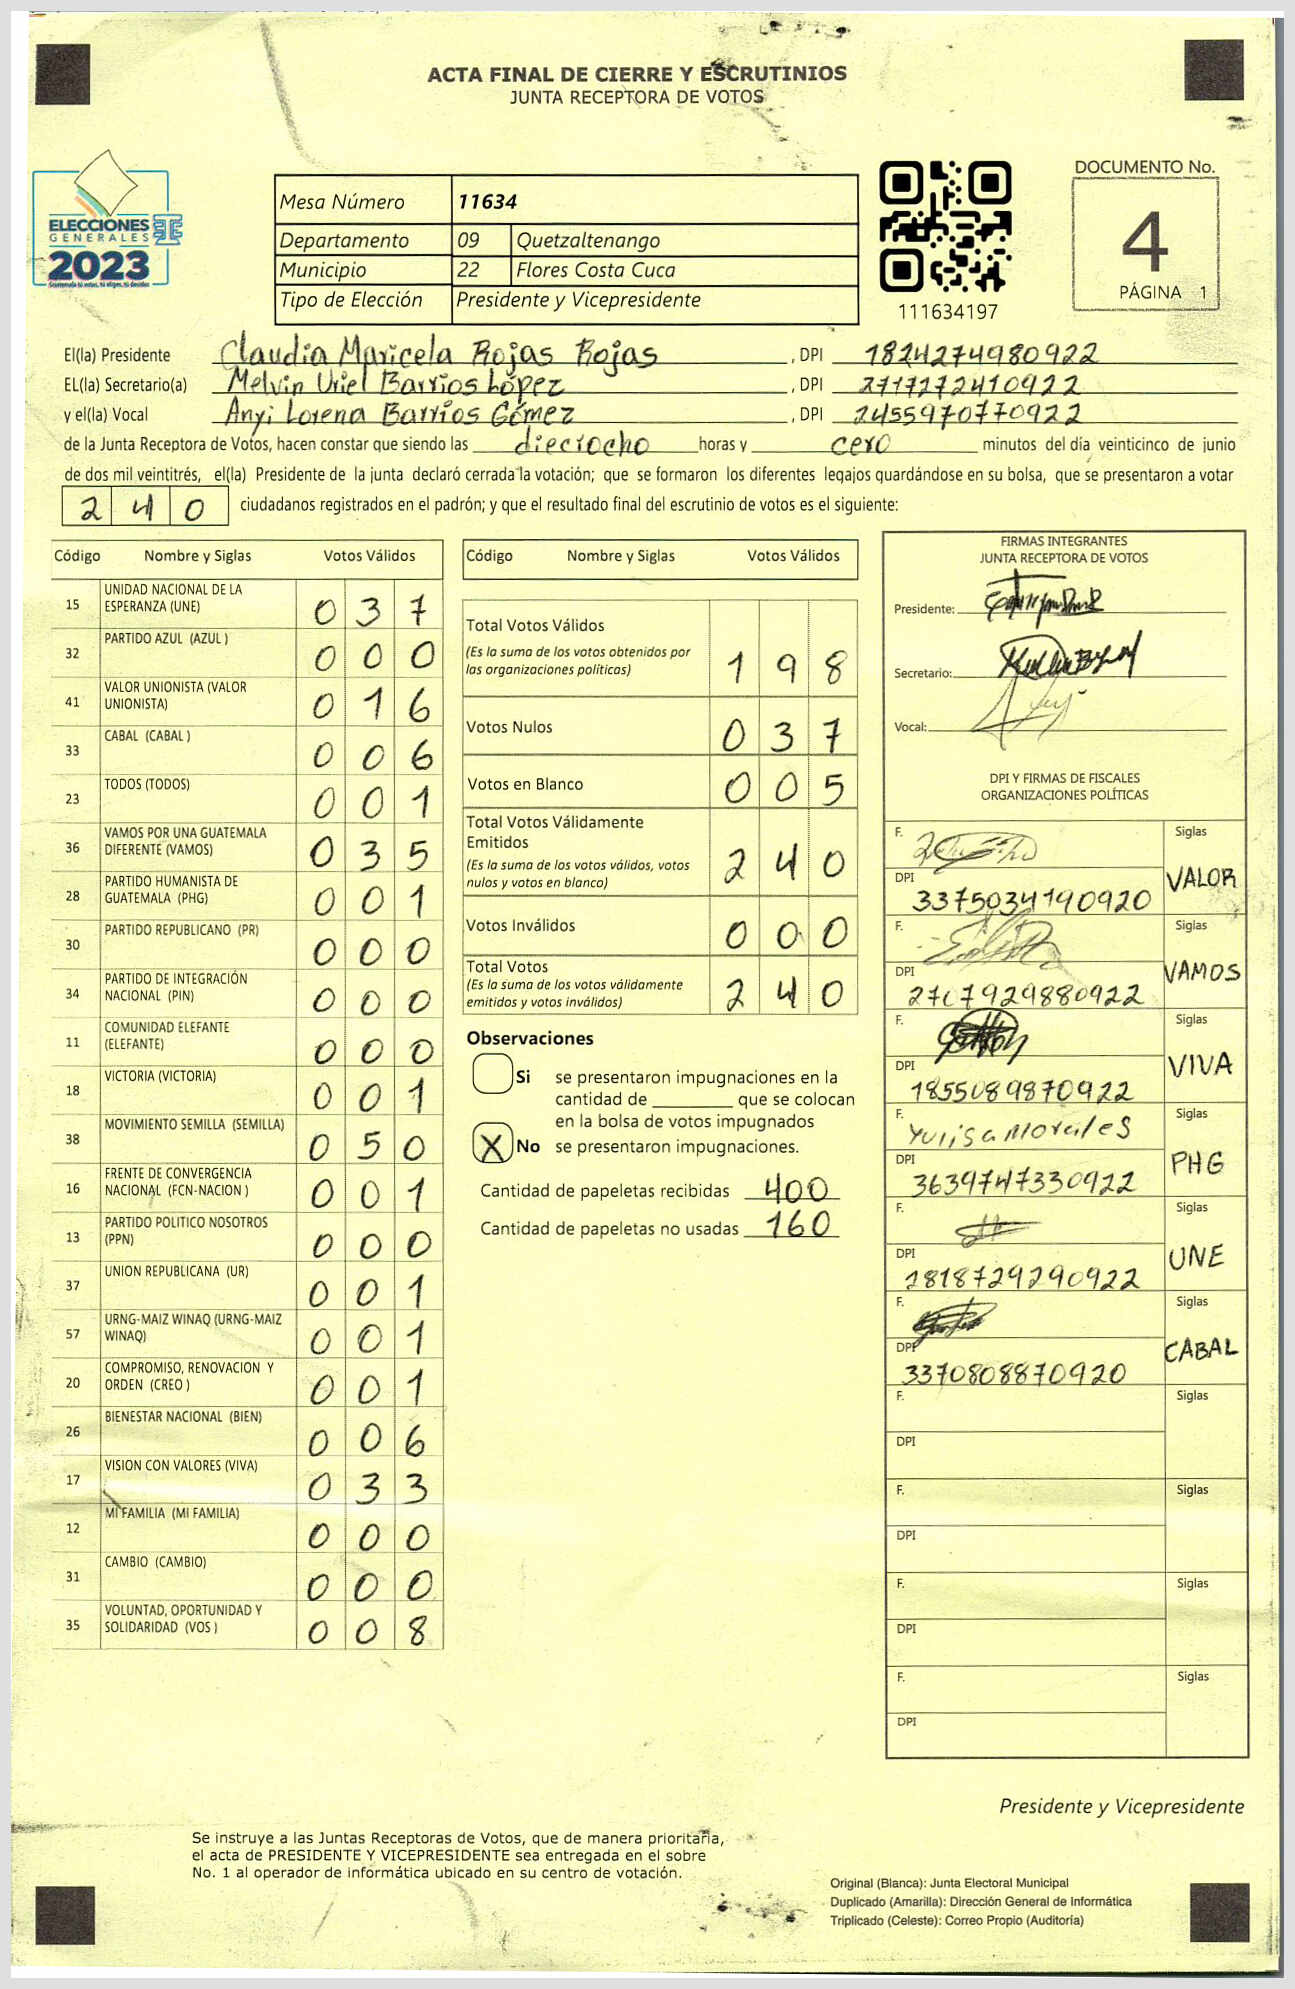 ACTA FINAL DE CIERRE Y ESCRUTINIOS
JUNTA RECEPTORA DE VOTOS
ELECCIONES
GENERALES
2023
Guatemala tú votas, tú eliges, tú decides
Mesa Número 11634
Departamento 09 Quetzaltenango
Municipio 22 Flores Costa Cuca
Tipo de Elección Presidente y Vicepresidente
111634197
DOCUMENTO No.
4
PÁGINA 1
El(la) Presidente Claudia Maricela Rojas Rojas , DPI 1824274980922
EL(la) Secretario(a) Melvin Uriel Barrios López , DPI 2717272410922
y el(la) Vocal Anyi Lorena Barrios Gómez , DPI 2455970770922
de la Junta Receptora de Votos, hacen constar que siendo las dieciocho horas y cero minutos del día veinticinco de junio
de dos mil veintitrés, el(la) Presidente de la junta declaró cerrada la votación; que se formaron los diferentes legajos guardándose en su bolsa, que se presentaron a votar
240 ciudadanos registrados en el padrón; y que el resultado final del escrutinio de votos es el siguiente:
Código Nombre y Siglas Votos Válidos
15 UNIDAD NACIONAL DE LA
ESPERANZA (UNE) 037
32 PARTIDO AZUL (AZUL ) 000
41 VALOR UNIONISTA (VALOR
UNIONISTA) 016
33 CABAL (CABAL ) 006
23 TODOS (TODOS) 001
36 VAMOS POR UNA GUATEMALA
DIFERENTE (VAMOS) 035
28 PARTIDO HUMANISTA DE
GUATEMALA (PHG) 001
30 PARTIDO REPUBLICANO (PR) 000
34 PARTIDO DE INTEGRACIÓN
NACIONAL (PIN) 000
11 COMUNIDAD ELEFANTE
(ELEFANTE) 000
18 VICTORIA (VICTORIA) 001
38 MOVIMIENTO SEMILLA (SEMILLA) 050
16 FRENTE DE CONVERGENCIA
NACIONAL (FCN-NACION ) 001
13 PARTIDO POLITICO NOSOTROS
(PPN) 000
37 UNION REPUBLICANA (UR) 001
57 URNG-MAIZ WINAQ (URNG-MAIZ
WINAQ) 001
20 COMPROMISO, RENOVACION Y
ORDEN (CREO ) 001
26 BIENESTAR NACIONAL (BIEN) 006
17 VISION CON VALORES (VIVA) 033
12 MI FAMILIA (MI FAMILIA) 000
31 CAMBIO (CAMBIO) 000
35 VOLUNTAD, OPORTUNIDAD Y
SOLIDARIDAD (VOS ) 008
Código Nombre y Siglas Votos Válidos
Total Votos Válidos
(Es la suma de los votos obtenidos por
las organizaciones políticas) 198
Votos Nulos 037
Votos en Blanco 005
Total Votos Válidamente
Emitidos
(Es la suma de los votos válidos, votos
nulos y votos en blanco) 240
Votos Inválidos 000
Total Votos
(Es la suma de los votos válidamente
emitidos y votos inválidos) 240
Observaciones
Si se presentaron impugnaciones en la
cantidad de ________ que se colocan
en la bolsa de votos impugnados
X No se presentaron impugnaciones.
Cantidad de papeletas recibidas 400
Cantidad de papeletas no usadas 160
FIRMAS INTEGRANTES
JUNTA RECEPTORA DE VOTOS
Presidente:
Secretario:
Vocal:
DPI Y FIRMAS DE FISCALES
ORGANIZACIONES POLÍTICAS
F. Siglas
DPI 3375034190920 VALOR
F. Siglas
DPI 2707929880922 VAMOS
F. Siglas
DPI 1855089870922 VIVA
F. Yulisa Morales Siglas
DPI 3639747330922 PHG
F. Siglas
DPI 1818729290922 UNE
F. Siglas
DPI 3370808870920 CABAL
F. Siglas
DPI
F. Siglas
DPI
F. Siglas
DPI
F. Siglas
DPI
Presidente y Vicepresidente
Se instruye a las Juntas Receptoras de Votos, que de manera prioritaria,
el acta de PRESIDENTE Y VICEPRESIDENTE sea entregada en el sobre
No. 1 al operador de informática ubicado en su centro de votación.
Original (Blanca): Junta Electoral Municipal
Duplicado (Amarilla): Dirección General de Informática
Triplicado (Celeste): Correo Propio (Auditoría)